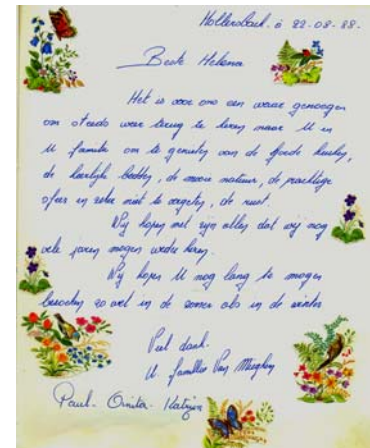 Hollersbach. ö 22.08.88.
Beste Helena
Het is voor ons een waar genoegen
om steeds weer terug te keren naar U en
U familie om te genieten van de goede keuken,
de heerlijke bedden, de mooie natuur, de prachtige
sfeer en zeker niet te vergeten, de rust.
Wij hopen met zijn allen dat wij nog
vele jaren mogen weder keren.
Wij hopen U nog lang te mogen
bezoeken zo wel in de zomer als in de winter
Veel dank.
U familie Van
Paul - Katrijn